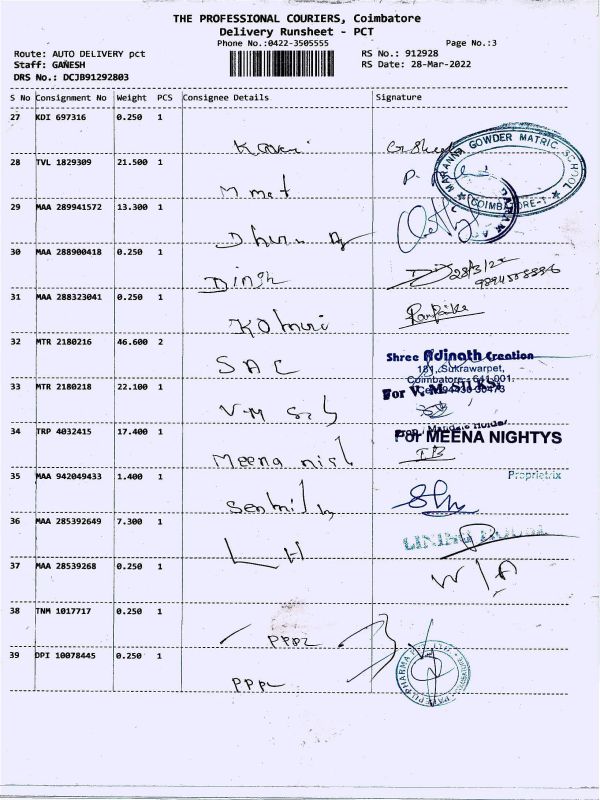 THE PROFESSIONAL COURIERS, Coimbatore
Delivery Runsheet - PCT
Phone No.:0422-3505555
Page No.:3
Route: AUTO DELIVERY pct
RS No.: 912928
Staff: GANESH
RS Date: 28-Mar-2022
DRS No.: DCJB91292803
S No Consignment No Weight PCS Consignee Details Signature
27 KDI 697316 0.250 1
Kaveri
MARIANNA GOWDER MATRIC SCHOOL
COIMBATORE-1
28 TVL 1829309 21.500 1
M mat
P.
29 MAA 289941572 13.300 1
30 MAA 288900418 0.250 1
Dinsh
28/3/22
31 MAA 288323041 0.250 1
32 MTR 2180216 46.600 2
SAC
Shree Adinath Creation
181, Sukrawarpet,
Coimbatore - 641 001.
33 MTR 2180218 22.100 1
V.M
For V.M
34 TRP 4032415 17.400 1
Meena
For MEENA NIGHTYS
Proprietrix
35 MAA 942049433 1.400 1
36 MAA 285392649 7.300 1
L H
LINING HOUSE
37 MAA 28539268 0.250 1
W/A
38 TNM 1017717 0.250 1
PPPL
39 DPI 10078445 0.250 1
PPPL